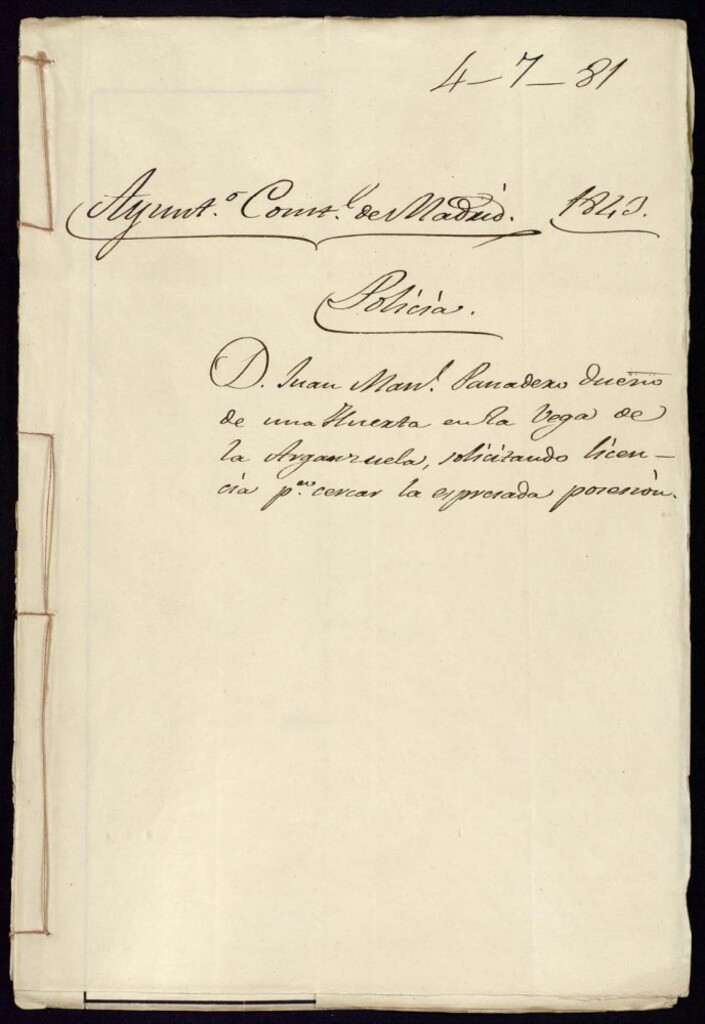 4-7-81
Ayunt.º Const.l de Madrid. 1843.
Policía.
D. Juan Man.l Panadero dueño
de una Huerta en la Vega de
la Arganzuela, solicitando licen-
cia p.ra cercar la espresada posesión.